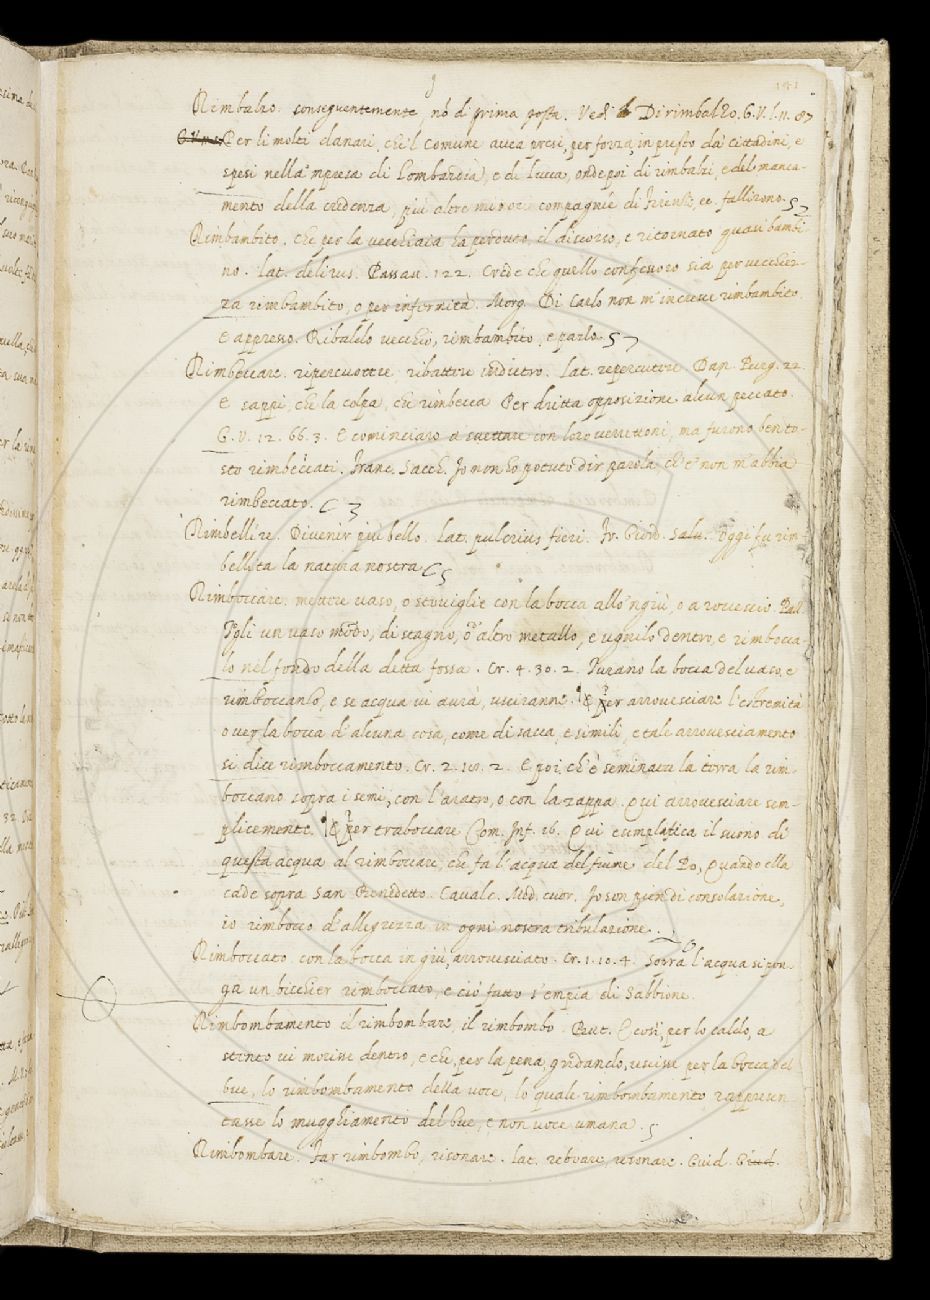 Rimbalzo. conseguentemente, nō di prima posta. Vedi Di rimbalzo. G. V. l. 11. 87
G.V. Per li molti danari, che'l Comune avea presi, per forza, in presto da' cittadini, e
spesi nella 'mpresa di Lombardia, e di Lucca, onde poi di rimbalzi, e del manca-
mento della credenza, più altre minori compagnie di Firenze, ec. fallirono.
Rimbambito. che per la vecchiaia ha perduto il discorso, e ritornato quasi bambi-
no. Lat. delirus. Passav. 122. Crede che quello confessoro sia per vecchiez-
za rimbambito, o per infermità. Morg. Di Carlo non m'incresce rimbambito.
E appresso. Ribaldo vecchio, rimbambito, e pazzo.
Rimbeccare. ripercuotere, ribattere indietro. Lat. repercutere. Dan. Purg. 22.
E sappi, che la colpa, che rimbecca Per dritta opposizione alcun peccato.
G. V. 12. 66. 3. E cominciaro a saettare con loro verrettoni, ma furono ben to-
sto rimbeccati. Franc. Sacch. Io non ho potuto dir parola ch'e' non m'abbia
rimbeccato.
Rimbellire. Divenir più bello. Lat. pulcrius fieri. Fr. Giord. Salv. Oggi fu rim-
bellita la natura nostra
Rimboccare. mettere vaso, o stoviglie con la bocca allo 'ngiù, o a rovescio. Pall.
Togli un vaso mōdo, di stagno, o d'altro metallo, e ugnilo dentro, e rimbocca-
lo nel fondo della detta fossa. Cr. 4. 30. 2. Turano la bocca del vaso, e
rimboccanlo, e se acqua vi avrà, usciranne. Per arrovesciare l'estremità
o ver la bocca d'alcuna cosa, come di sacca, e simili, e tale arrovesciamento
si dice rimboccamento. Cr. 2. 2. E poi ch'è seminata la terra la rim-
boccano sopra i semi, con l'aratro, o con la zappa. Qui arrovesciare sem-
plicemente. per traboccare Com. Inf. 16. Qui esemplifica il suono di
questa acqua al rimboccare, che fa l'acqua del fiume del Po, quando ella
cade sopra San Benedetto. Cavalc. Med. cuor. Io son pien di consolazione,
io rimbocco d'allegrezza in ogni nostra tribulazione.
Rimboccato. con la bocca in giù, arrovesciato. Cr. 1. 10. 4. Sopra l'acqua si pon-
ga un bicchier rimboccato, e ciò fatto s'empia di sabbione.
Rimbombamento. il rimbombare, il rimbombo. But. E così, per lo caldo, a
stento vi morisse dentro, e che, per la pena, gridando, uscisse per la bocca del
bue, lo rimbombamento della voce, lo quale rimbombamento rappresen-
tasse lo mugghiamento del bue, e non voce umana.
Rimbombare. Far rimbombo, risonare. Lat. reboare, resonare. Guid. Giud.